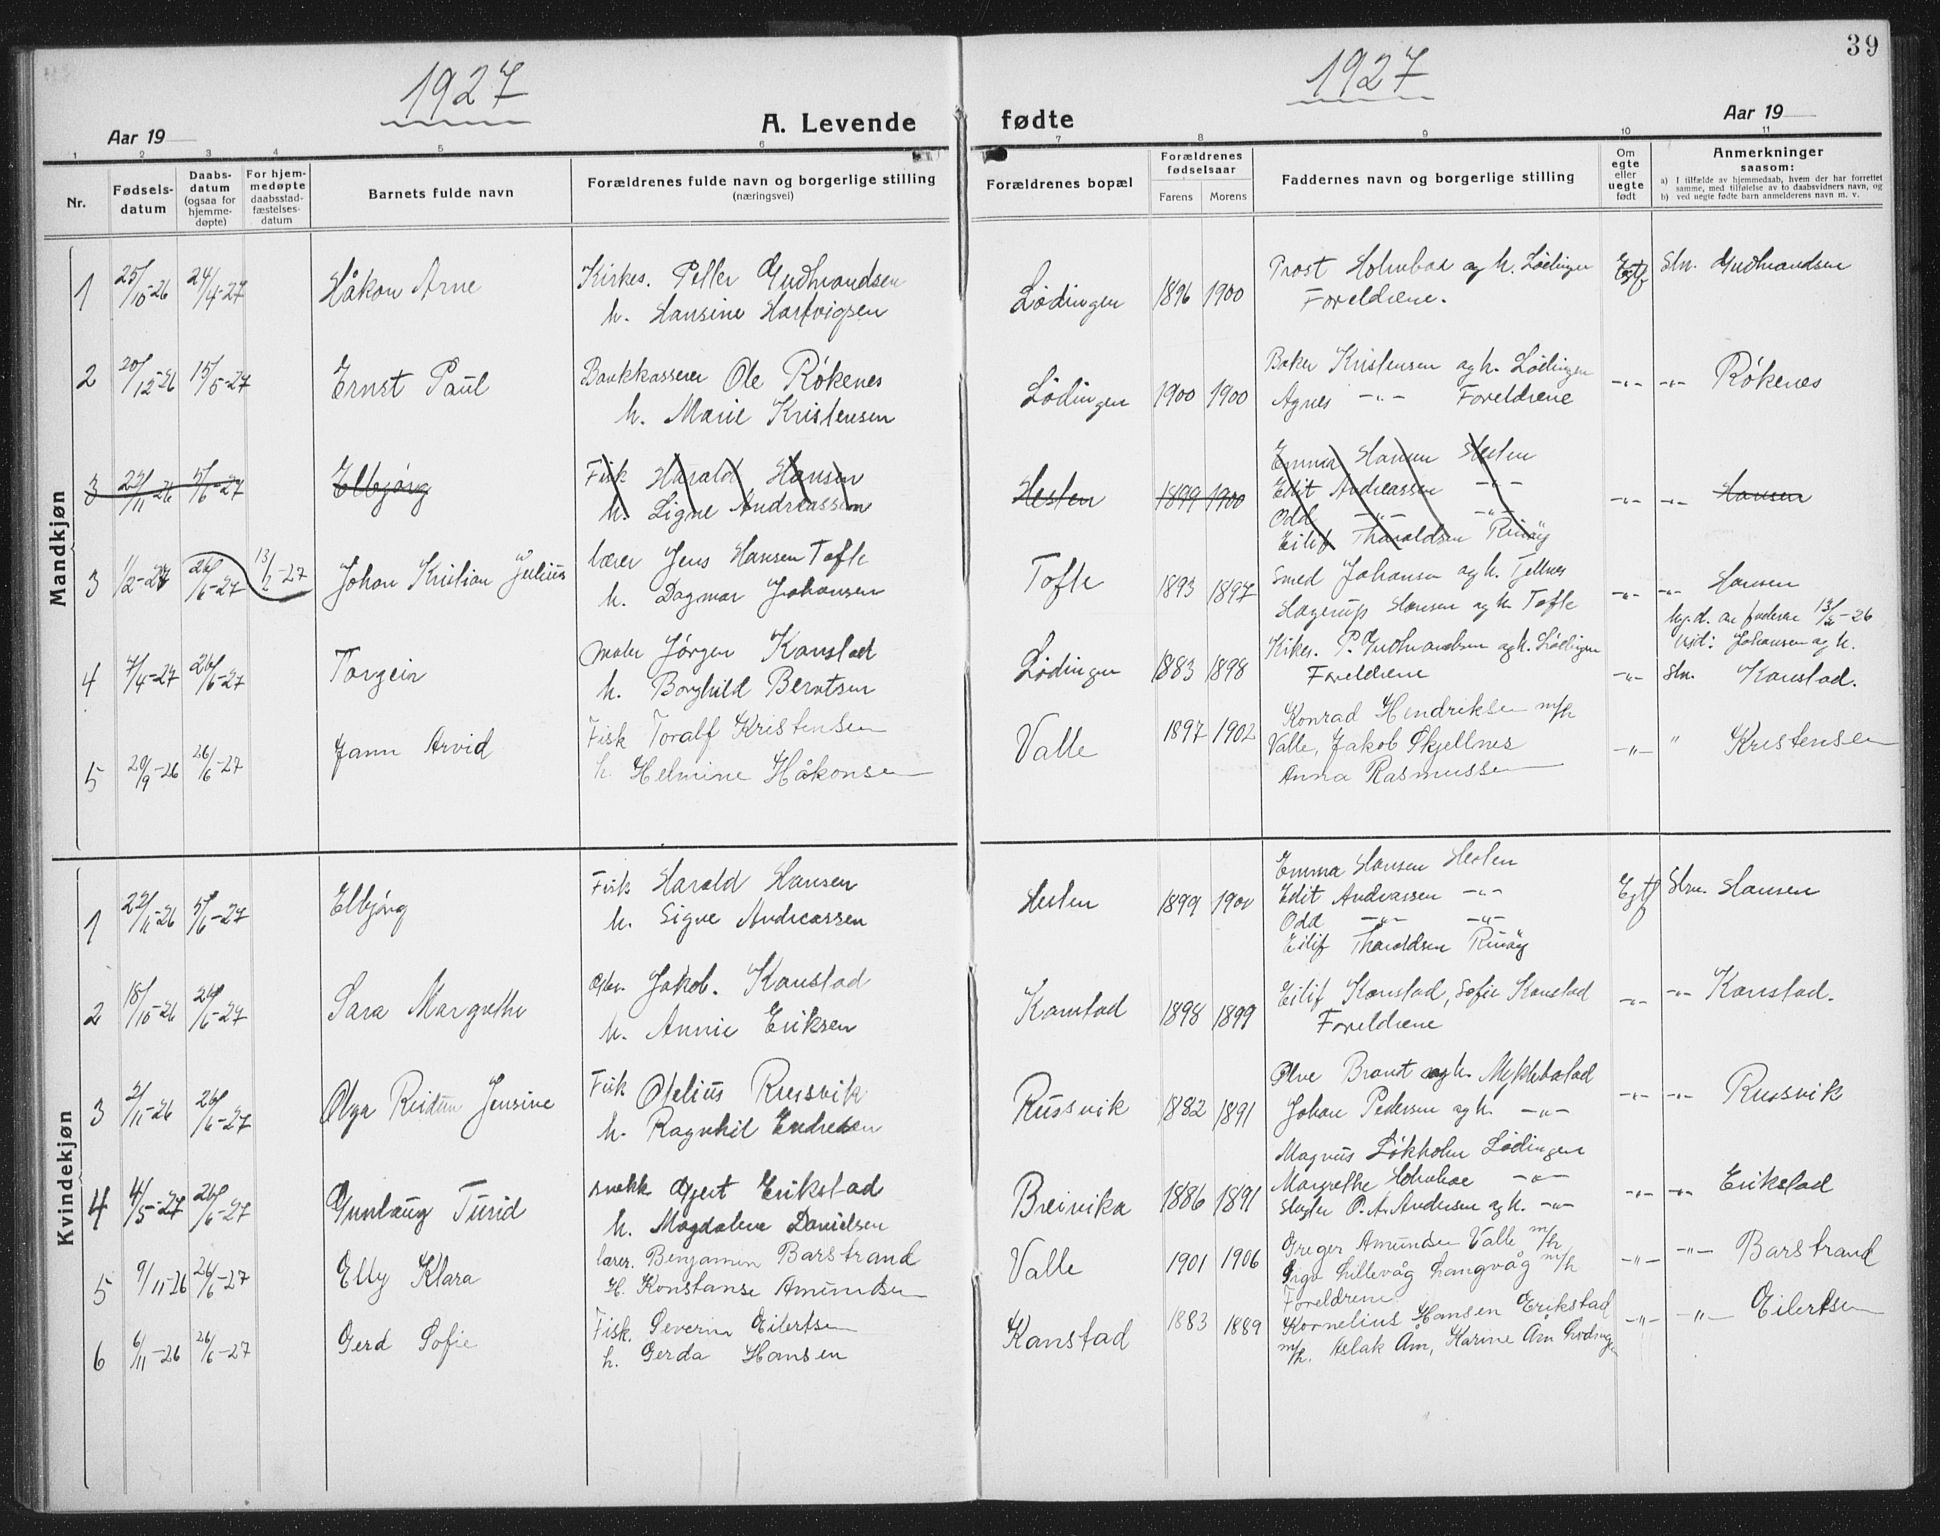 39
1927
1927
Aar 19
A. Levende
fødte
Aar 19
1 2 3 4 5 6 7 8 9 10 11
Nr.
Fødsels-
datum
Daabs-
datum
(ogsaa for
hjemme-
døpte)
For hjem-
medøpte
daabsstad-
fæstelses-
datum
Barnets fulde navn
Forældrenes fulde navn og borgerlige stilling
(næringsvei)
Forældrenes bopæl
Forældrenes
fødselsaar
Farens Morens
Faddernes navn og borgerlige stilling
Om
egte
eller
uegte
født
Anmerkninger
saasom:
a) I tilfælde av hjemmedaab, hvem der har forrettet
samme, med tilføielse av to daabsvidners navn, og
b) ved uegte fødte barn anmelderens navn m. v.
Mandkjøn
1 25/10-26 24/4-27 Håkon Arne
Kirkes. Peller Gudmandsen
h. Hansine Hartvigsen
Lødingen 1896 1900
Prost Holmboe og h. Lødingen
Foreldrene.
Egtf Stn. Gudmandsen
2 20/12-26 15/5-27 Ernst Paul
Bankkasserer Ole Røkenes
h. Marie Kristensen
Lødingen 1900 1900
Baker Kristensen og h. Lødingen
Agnes -"- Foreldrene
-"- -"- Røkenes
3 22/11-26 5/6-27 Elbjørg
Fisk Harald Hansen
h. Signe Andreassen
Hesten 1899 1900
Emma Hansen Hesten
Edit Andreassen -"-
Odd -"- -"-
Eilif Tharaldsen Rinøy
-"- -"- Hansen
3 1/2-27 26/6-27 13/2-27 Johan Kristian Julius
Lærer Jens Hansen Tofte
h. Dagmar Johansen
Tofte 1893 1897
Smed Johansen og h. Tjellnes
Hagerup Hansen og h. Tofte
-"- -"- Hansen
hj.d. av faderen 13/2-26
vid: Johansen og h.
4 7/4-27 26/6-27 Torgeir
Maler Jørgen Kanstad
h. Borghild Berntsen
Lødingen 1883 1898
Kirkes. P. Gudmandsen og h. Lødingen
Foreldrene
-"- Stn. Kanstad.
5 20/9-26 26/6-27 Jann Arvid
Fisk Toralf Kristensen
h. Helmine Håkonsen
Valle 1897 1902
Konrad Hendriksen m/h
Valle, Jakob Skjellnes
Anna Rasmussen
-"- " Kristensen
Kvindekjøn
1 22/11-26 5/6-27 Elbjørg
Fisk Harald Hansen
h. Signe Andreassen
Hesten 1899 1900
Emma Hansen Hesten
Edit Andreassen -"-
Odd -"- -"-
Eilif Tharaldsen Rinøy
Egtf Stn. Hansen
2 18/10-26 26/6-27 Sara Margrethe
Jakob. Kanstad
h. Annie Eriksen
Kanstad 1898 1899
Eilif Kanstad, Sofie Kanstad
Foreldrene
-"- -"- Kanstad.
3 2/11-26 26/6-27 Olga Reidun Jensine
Fisk Otelius Russvik
h. Ragnhil Endresen
Russvik 1882 1891
Brandt og h. Myklebostad
Johan Pedersen og h. -"-
-"- -"- Russvik
4 4/5-27 26/6-27 Gunlaug Turid
snekk Gjert Erikstad
h. Magdalene Danielsen
Breivika 1886 1891
Magnus Løkholm Lødingen
Margrethe Holmboe -"-
Slagter O. A. Andersen og h. -"-
-"- -"- Erikstad
5 9/11-26 26/6-27 Elly Klara
lærer. Benjamin Barstrand
H. Konstanse Amundsen
Valle 1901 1906
Greger Amundsen Valle m/h
Lillevåg Langvåg m/h
Foreldrene
-"- -"- Barstrand
6 6/11-26 26/6-27 Gerd Sofie
Fisk. Severin Eilertsen
h. Gerda Hansen
Kanstad 1883 1889
Kornelius Hansen Erikstad
m/h. Aslak Åm, Karine Åm Lødingen
-"- -"- Eilertsen